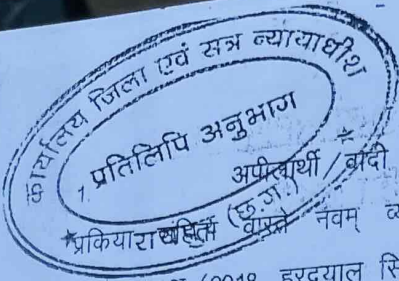 कार्यालय जिला एवं सत्र न्यायाधीश
प्रतिलिपि अनुभाग
(छ.ग.)
1. अपीलार्थी / वादी
प्रक्रिया नवम्
/2018 हरदयाल